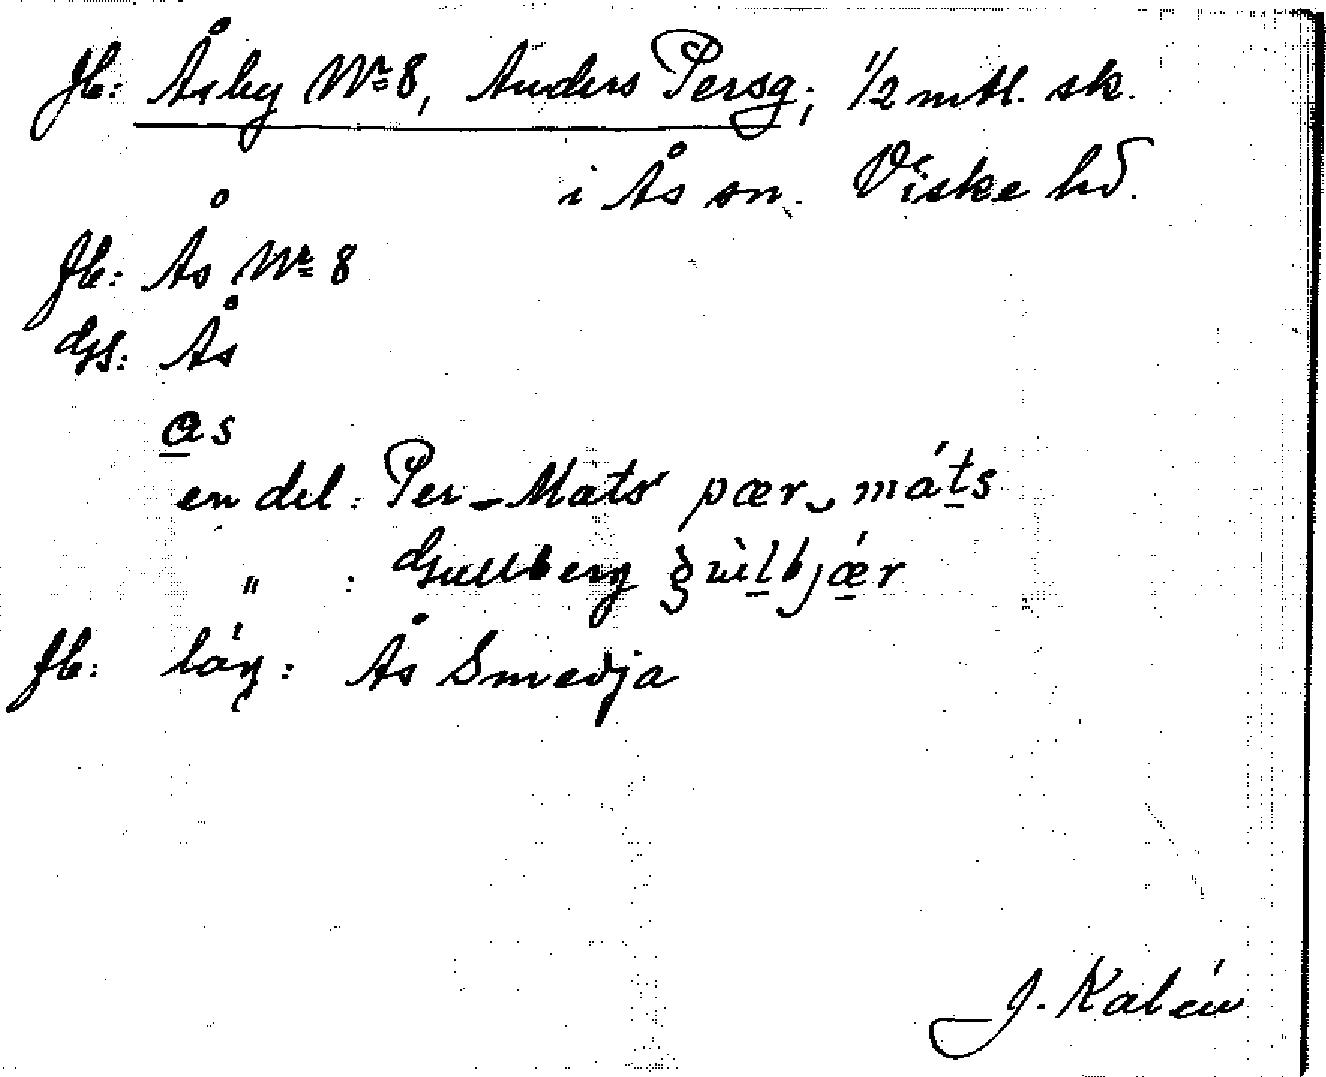 Jb: Åsby Nr 8, Anders Persg; 1/2 mtl. sk.
i Ås sn. Viske hd.
Jb: Ås Nr 8
GS: Ås
as
en del: Per-Mats pær máts
" : Gullberg
Jb: läg: Ås Smedja
J. Kalén